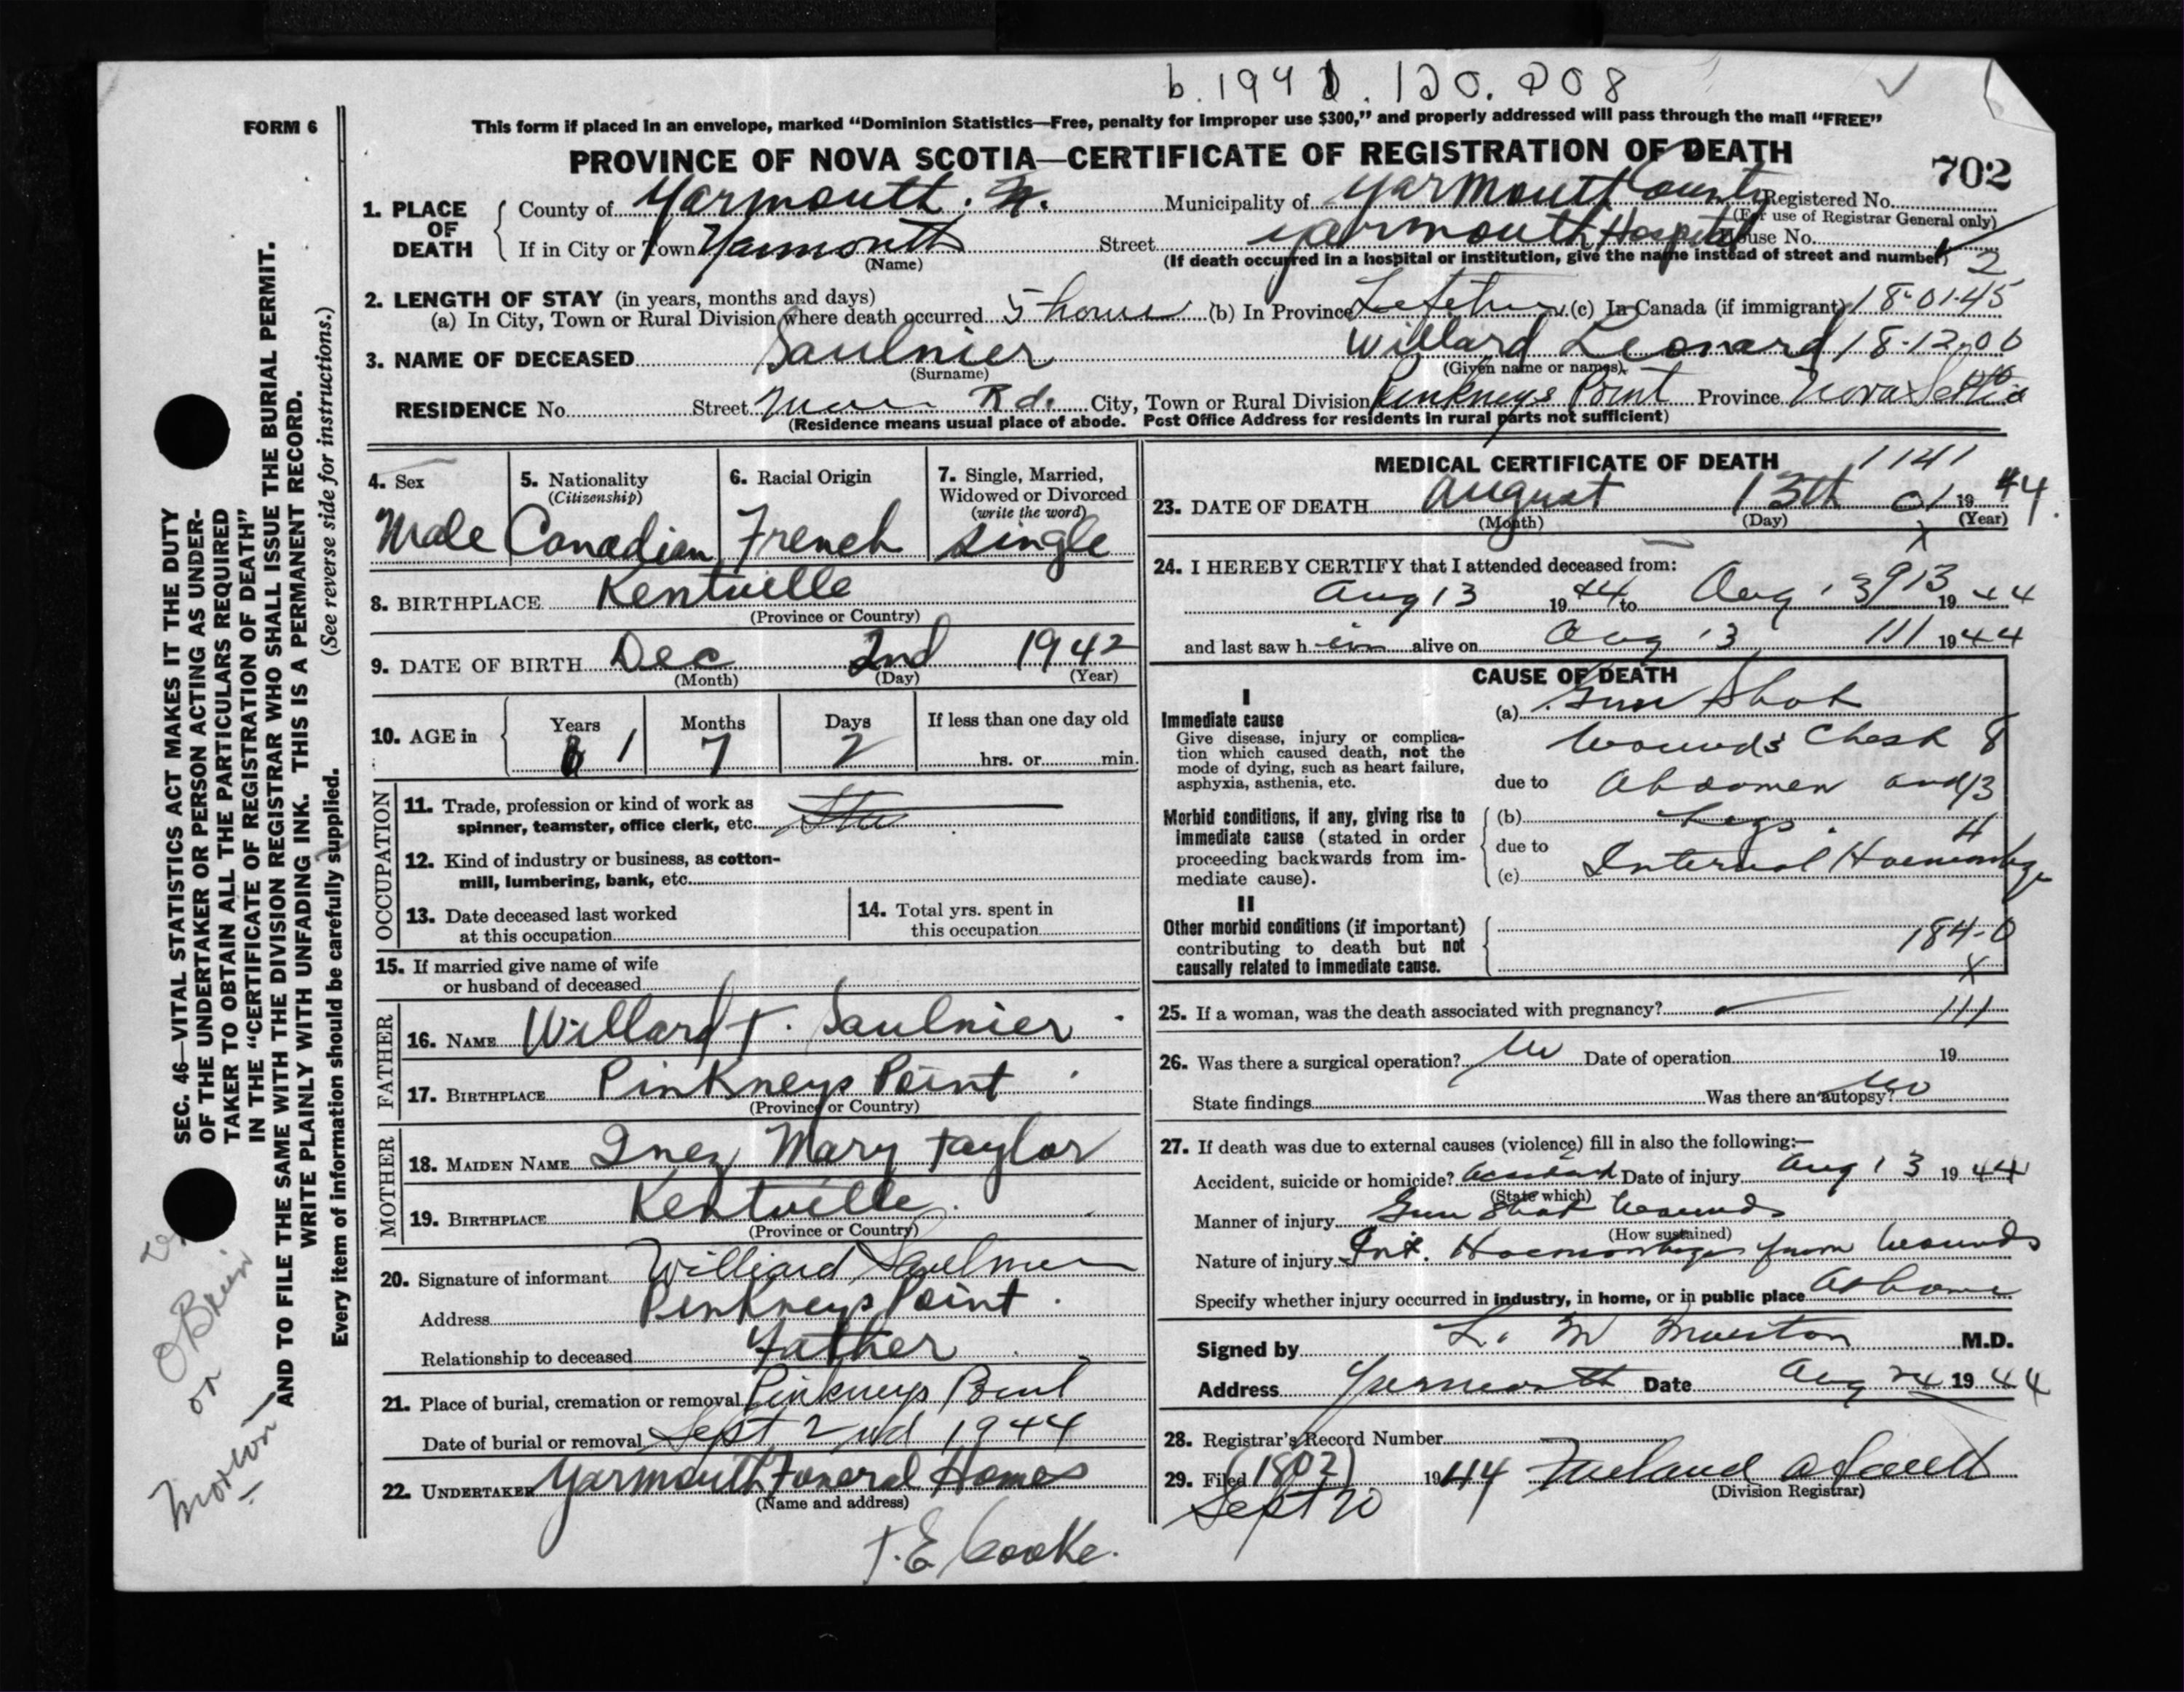 b. 1942. 120. 208
FORM 6
This form if placed in an envelope, marked “Dominion Statistics—Free, penalty for improper use $300,” and properly addressed will pass through the mail “FREE”
PROVINCE OF NOVA SCOTIA—CERTIFICATE OF REGISTRATION OF DEATH
702
1. PLACE OF DEATH
County of Yarmouth Municipality of Yarmouth County Registered No.
(For use of Registrar General only)
If in City or Town Yarmouth Street Yarmouth Hospital House No.
(Name) (If death occurred in a hospital or institution, give the name instead of street and number) 2
2. LENGTH OF STAY (in years, months and days)
(a) In City, Town or Rural Division where death occurred 5 hours (b) In Province Lifetime (c) In Canada (if immigrant) 18-01-45
3. NAME OF DECEASED Saulnier Willard Leonard 18-12-00
(Surname) (Given name or names)
RESIDENCE No. Street Main Rd. City, Town or Rural Division Pinkneys Point Province Nova Scotia
(Residence means usual place of abode. Post Office Address for residents in rural parts not sufficient)
4. Sex Male
5. Nationality (Citizenship) Canadian
6. Racial Origin French
7. Single, Married, Widowed or Divorced (write the word) single
8. BIRTHPLACE Kentville
(Province or Country)
9. DATE OF BIRTH Dec 2nd 1942
(Month) (Day) (Year)
10. AGE in Years Months Days If less than one day old
1 7 2 hrs. or min.
OCCUPATION
11. Trade, profession or kind of work as spinner, teamster, office clerk, etc.
12. Kind of industry or business, as cotton-mill, lumbering, bank, etc.
13. Date deceased last worked at this occupation
14. Total yrs. spent in this occupation
15. If married give name of wife or husband of deceased
FATHER
16. NAME Willard T. Saulnier
17. BIRTHPLACE Pinkneys Point
(Province or Country)
MOTHER
18. MAIDEN NAME Inez Mary Taylor
19. BIRTHPLACE Kentville
(Province or Country)
20. Signature of informant Williard Saulnier
Address Pinkneys Point
Relationship to deceased Father
21. Place of burial, cremation or removal Pinkneys Point
Date of burial or removal Sept 2nd 1944
22. UNDERTAKER Yarmouth Funeral Homes
(Name and address)
T. E. Cooke.
MEDICAL CERTIFICATE OF DEATH 1141
23. DATE OF DEATH August 13th 01 1944
(Month) (Day) (Year)
24. I HEREBY CERTIFY that I attended deceased from:
Aug 13 1944 to Aug 13 1944
and last saw him alive on Aug 13 1944
CAUSE OF DEATH
I
Immediate cause
Give disease, injury or complication which caused death, not the mode of dying, such as heart failure, asphyxia, asthenia, etc.
(a) Gun Shot
Wounds Chest
due to Abdomen and
Morbid conditions, if any, giving rise to immediate cause (stated in order proceeding backwards from immediate cause).
(b) Legs.
due to
(c) Internal Haemorrhage
II
Other morbid conditions (if important) contributing to death but not causally related to immediate cause.
184-0
25. If a woman, was the death associated with pregnancy? 111
26. Was there a surgical operation? No Date of operation 19
State findings Was there an autopsy? No
27. If death was due to external causes (violence) fill in also the following:—
Accident, suicide or homicide? Accident Date of injury Aug 13 1944
(State which)
Manner of injury Gun Shot Wounds
(How sustained)
Nature of injury Int. Haemorrhage from wounds
Specify whether injury occurred in industry, in home, or in public place At home
Signed by L. M. M.D.
Address Yarmouth Date Aug 24 1944
28. Registrar's Record Number
29. Filed (1802) 1944
Sept 20
(Division Registrar)
SEC. 46—VITAL STATISTICS ACT MAKES IT THE DUTY
OF THE UNDERTAKER OR PERSON ACTING AS UNDER-
TAKER TO OBTAIN ALL THE PARTICULARS REQUIRED
IN THE “CERTIFICATE OF REGISTRATION OF DEATH”
AND TO FILE THE SAME WITH THE DIVISION REGISTRAR WHO SHALL ISSUE THE BURIAL PERMIT.
WRITE PLAINLY WITH UNFADING INK. THIS IS A PERMANENT RECORD.
Every item of information should be carefully supplied. (See reverse side for instructions.)
O'Brien
or